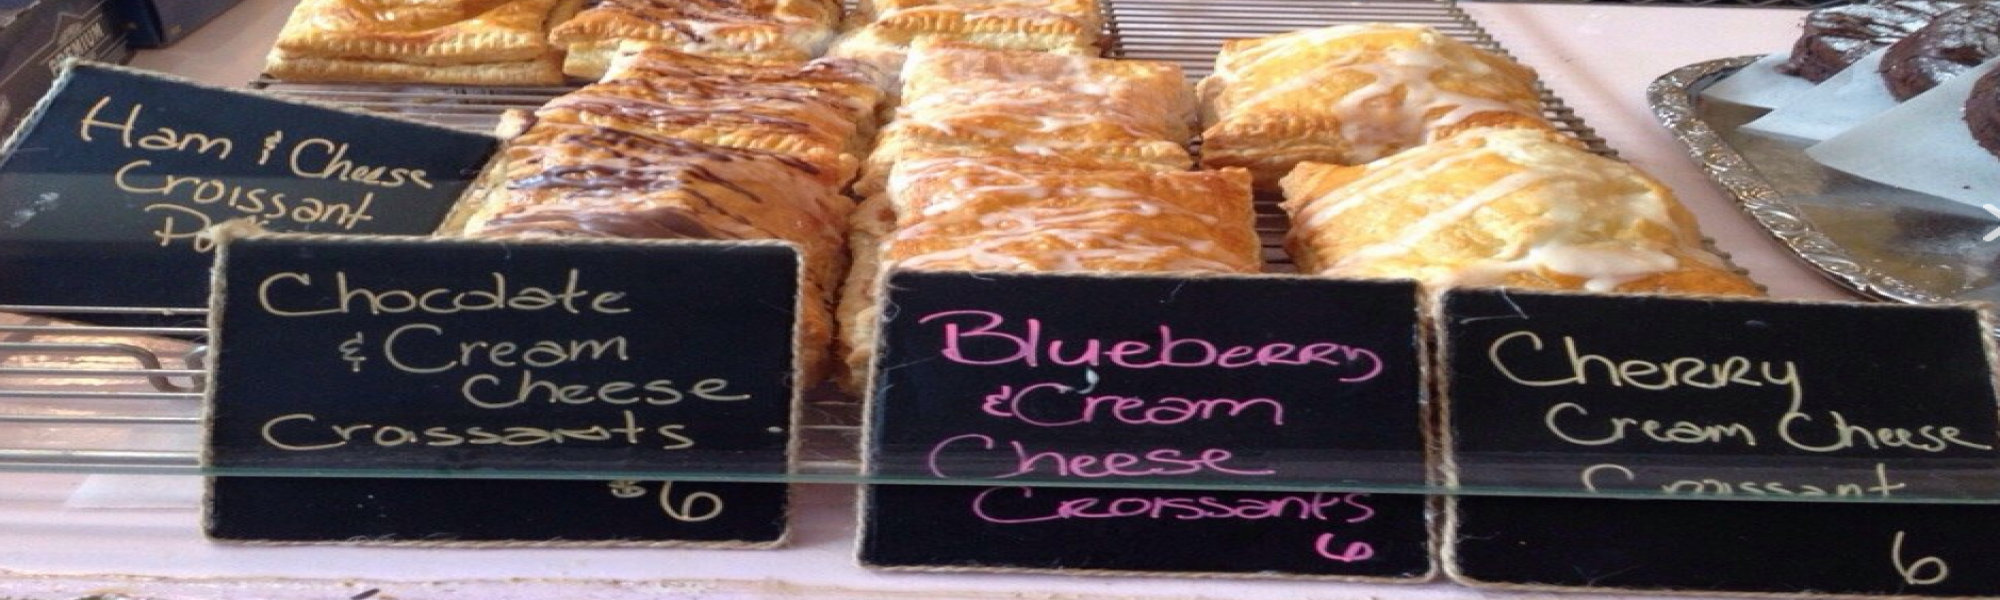 PREMIUM
Ham & Cheese
Croissant
Chocolate
& Cream
Cheese
Croissants
$6
Blueberry
& Cream
Cheese
Croissants
6
Cherry
Cream Cheese
Croissant
6